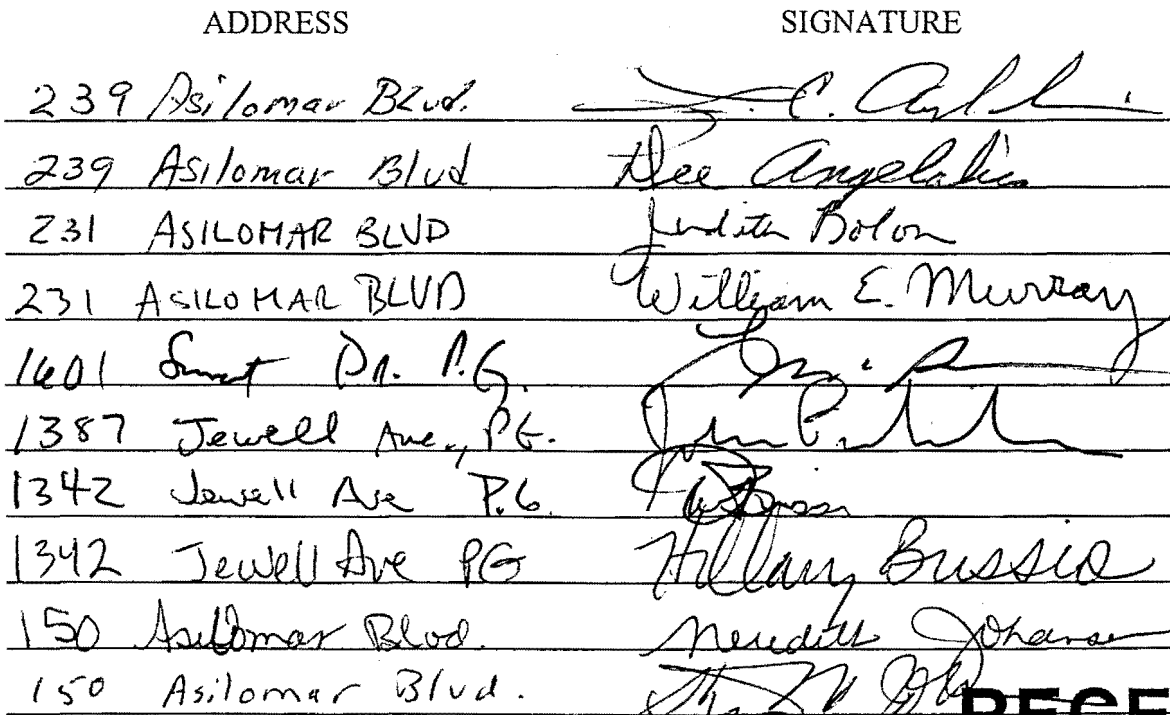 ADDRESS SIGNATURE
239 Asilomar Blvd. C.
239 Asilomar Blvd Dee Angelakis
231 ASILOMAR BLVD Judith Bolon
231 ASILOMAR BLVD William E. Murray
1601 Sunset Dr. P.G.
1387 Jewell Ave., P.G.
1342 Jewell Ave P.G.
1342 Jewell Ave PG Hillary Bussio
150 Asilomar Blvd. Meredith Johansen
150 Asilomar Blvd.
RECE